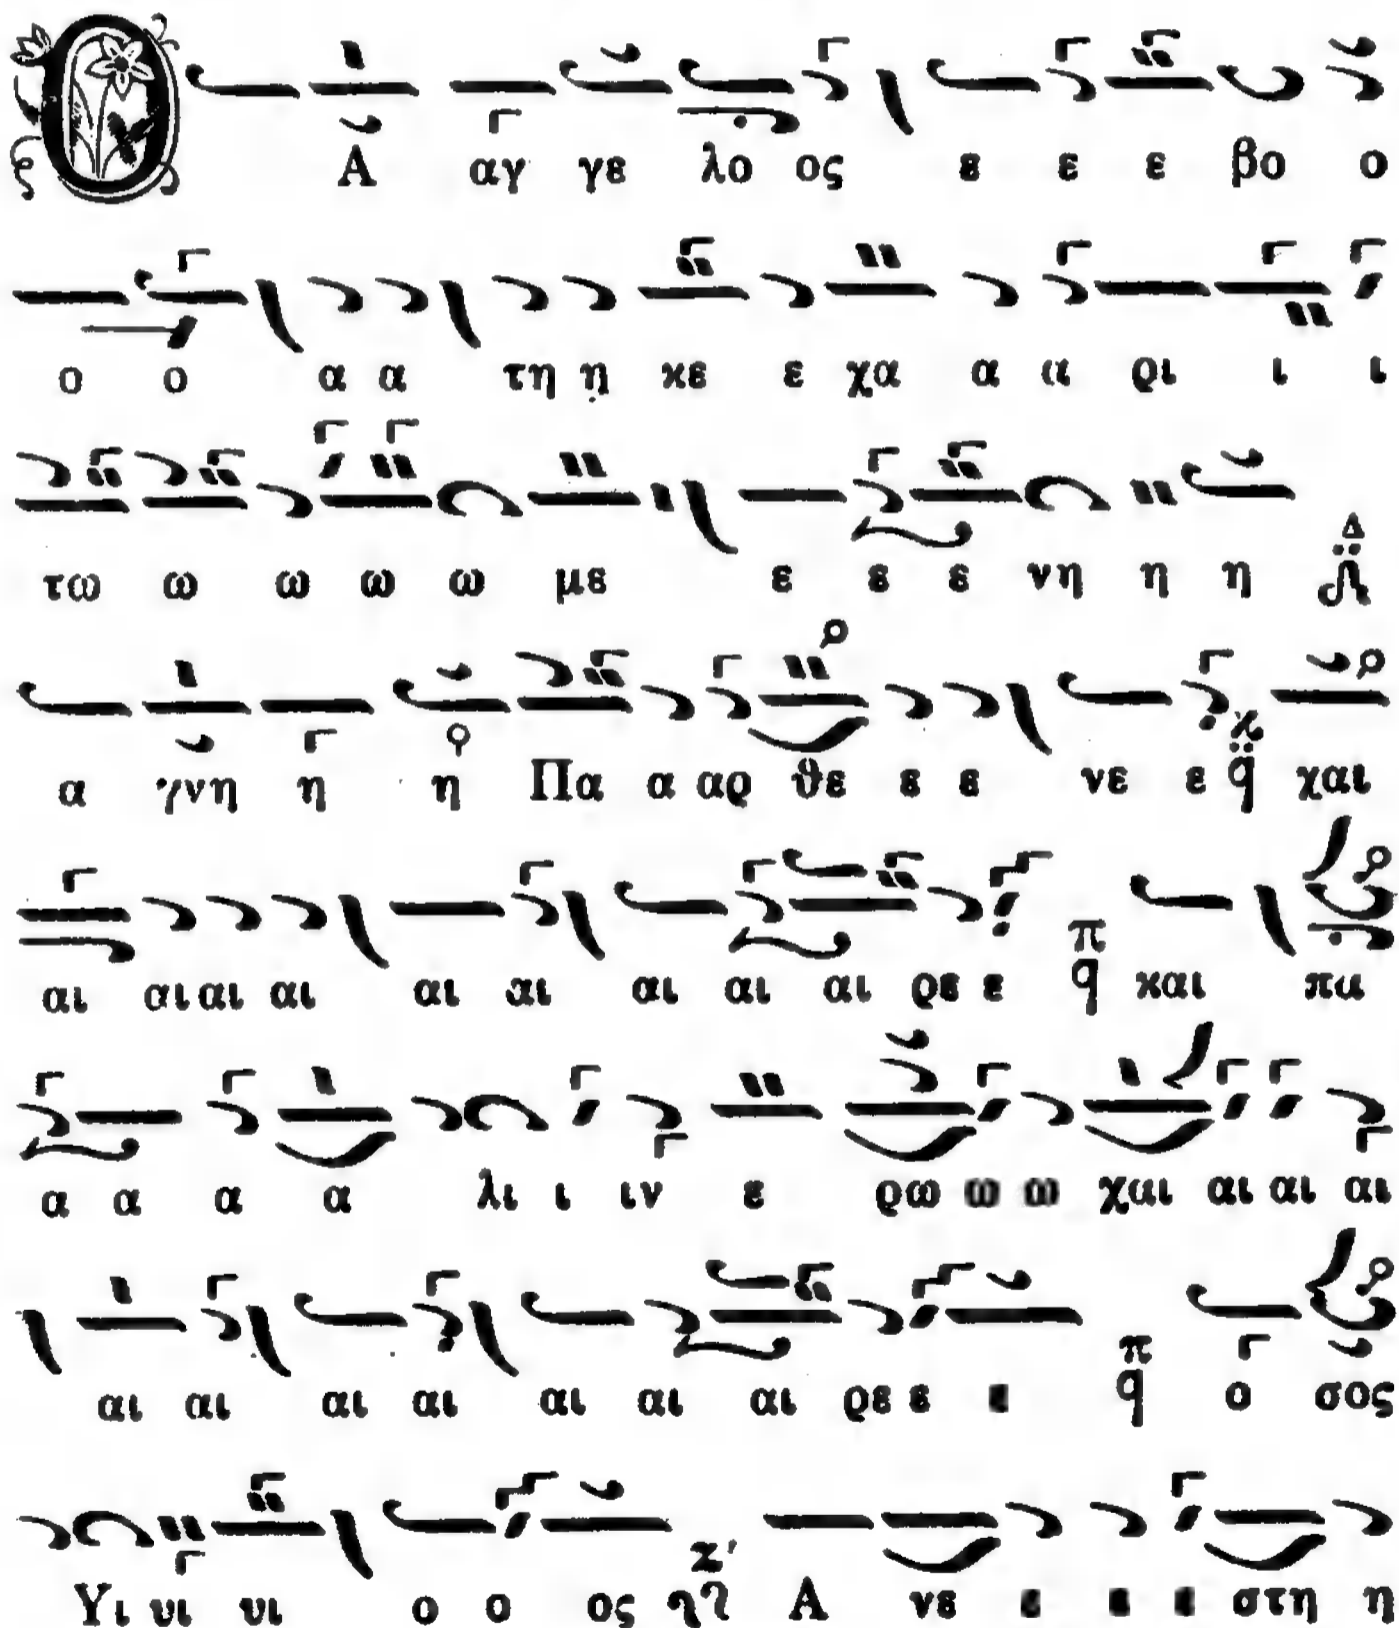 Ο Α αγ γε λο ος ε ε ε βο ο
ο ο α α τη η κε ε χα α α ρι ι ι
τω ω ω ω ω με ε ε ε νη η η Δ
α γνη η η Πα α αρ θε ε ε νε ε χ q χαι
αι αι αι αι αι αι αι αι αι ρε ε π q και πα
α α α α λι ι ιν ε ρω ω ω χαι αι αι αι
αι αι αι αι αι αι αι ρε ε ε π q ο σος
Υι υι υι ο ο ος Ζ' Α νε ε ε ε στη η